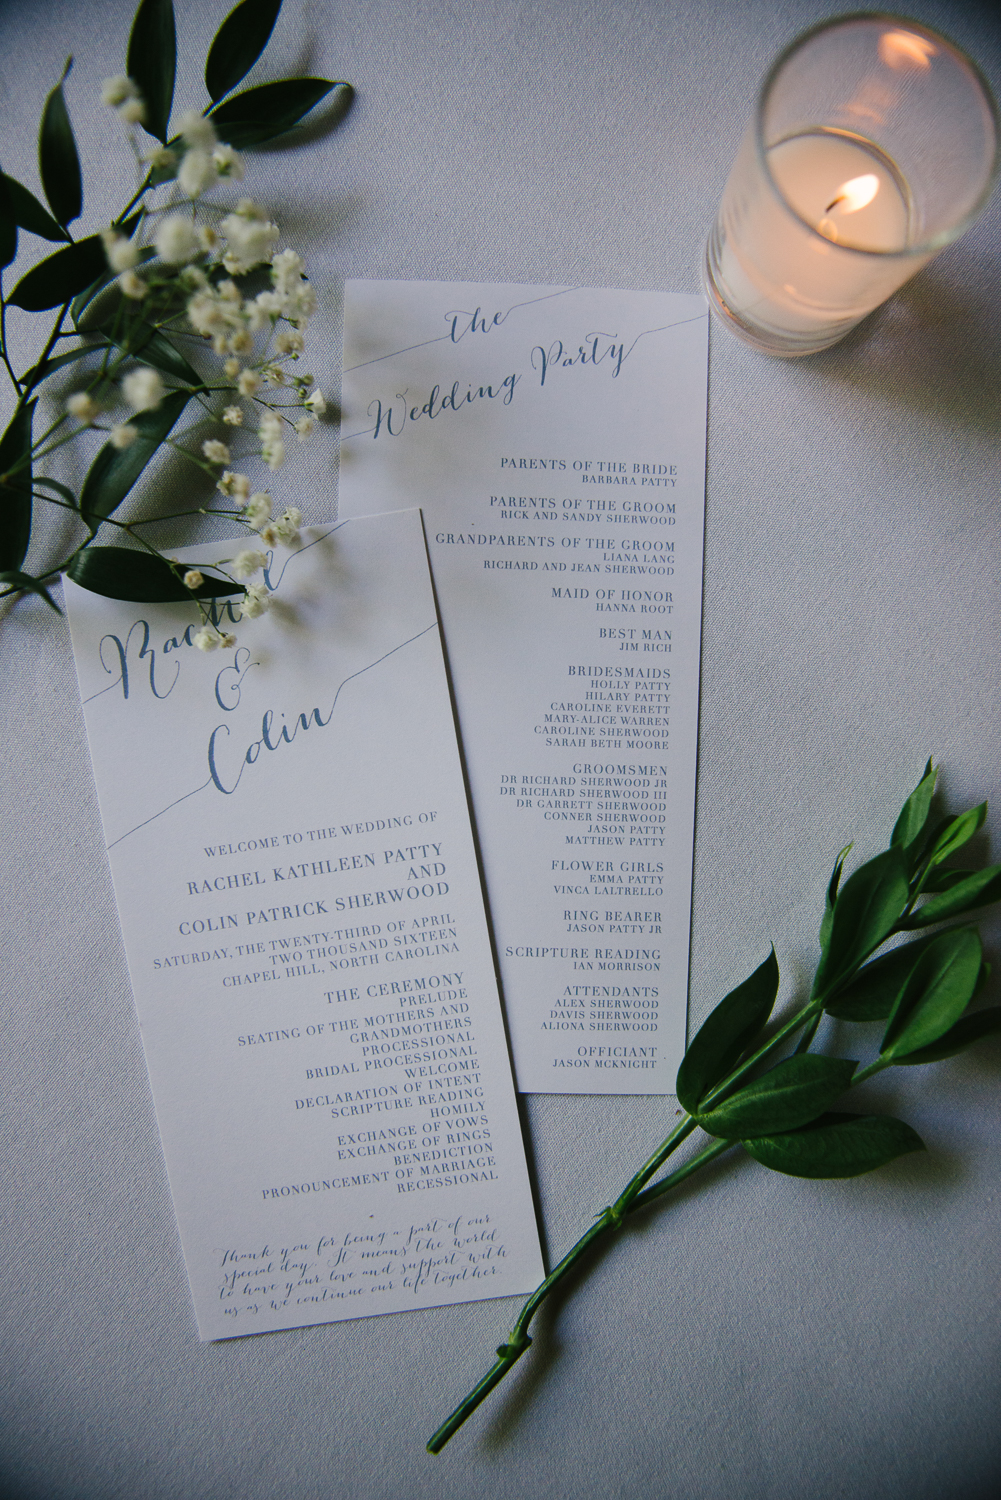 Rachel
&
Colin
WELCOME TO THE WEDDING OF
RACHEL KATHLEEN PATTY
AND
COLIN PATRICK SHERWOOD
SATURDAY, THE TWENTY-THIRD OF APRIL
TWO THOUSAND SIXTEEN
CHAPEL HILL, NORTH CAROLINA
THE CEREMONY
PRELUDE
SEATING OF THE MOTHERS AND
GRANDMOTHERS
PROCESSIONAL
BRIDAL PROCESSIONAL
WELCOME
DECLARATION OF INTENT
SCRIPTURE READING
HOMILY
EXCHANGE OF VOWS
EXCHANGE OF RINGS
BENEDICTION
PRONOUNCEMENT OF MARRIAGE
RECESSIONAL
Thank you for being a part of our
special day. It means the world
to have your love and support with
us as we continue our life together.
the
Wedding Party
PARENTS OF THE BRIDE
BARBARA PATTY
PARENTS OF THE GROOM
RICK AND SANDY SHERWOOD
GRANDPARENTS OF THE GROOM
LIANA LANG
RICHARD AND JEAN SHERWOOD
MAID OF HONOR
HANNA ROOT
BEST MAN
JIM RICH
BRIDESMAIDS
HOLLY PATTY
HILARY PATTY
CAROLINE EVERETT
MARY-ALICE WARREN
CAROLINE SHERWOOD
SARAH BETH MOORE
GROOMSMEN
DR RICHARD SHERWOOD JR
DR RICHARD SHERWOOD III
DR GARRETT SHERWOOD
CONNER SHERWOOD
JASON PATTY
MATTHEW PATTY
FLOWER GIRLS
EMMA PATTY
VINCA LALTRELLO
RING BEARER
JASON PATTY JR
SCRIPTURE READING
IAN MORRISON
ATTENDANTS
ALEX SHERWOOD
DAVIS SHERWOOD
ALIONA SHERWOOD
OFFICIANT
JASON MCKNIGHT